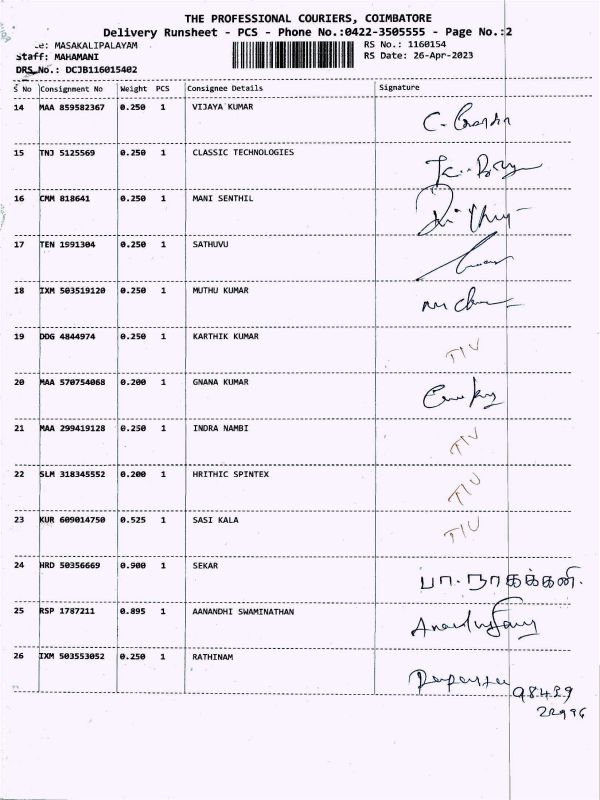 THE PROFESSIONAL COURIERS, COIMBATORE
Delivery Runsheet - PCS - Phone No.:0422-3505555 - Page No.:2
e: MASAKALIPALAYAM RS No.: 1160154
Staff: MAHAMANI RS Date: 26-Apr-2023
DRS No.: DCJB116015402
S No Consignment No Weight PCS Consignee Details Signature
14 MAA 859582367 0.250 1 VIJAYA KUMAR
15 TNJ 5125569 0.250 1 CLASSIC TECHNOLOGIES
16 CMM 818641 0.250 1 MANI SENTHIL
17 TEN 1991304 0.250 1 SATHUVU
18 IXM 503519120 0.250 1 MUTHU KUMAR
19 DDG 4844974 0.250 1 KARTHIK KUMAR TIU
20 MAA 570754068 0.200 1 GNANA KUMAR
21 MAA 299419128 0.250 1 INDRA NAMBI TIU
22 SLM 318345552 0.200 1 HRITHIC SPINTEX TIU
23 KUR 609014750 0.525 1 SASI KALA TIU
24 HRD 50356669 0.900 1 SEKAR பா. நாகக்கனி.
25 RSP 1787211 0.895 1 AANANDHI SWAMINATHAN
26 IXM 503553052 0.250 1 RATHINAM